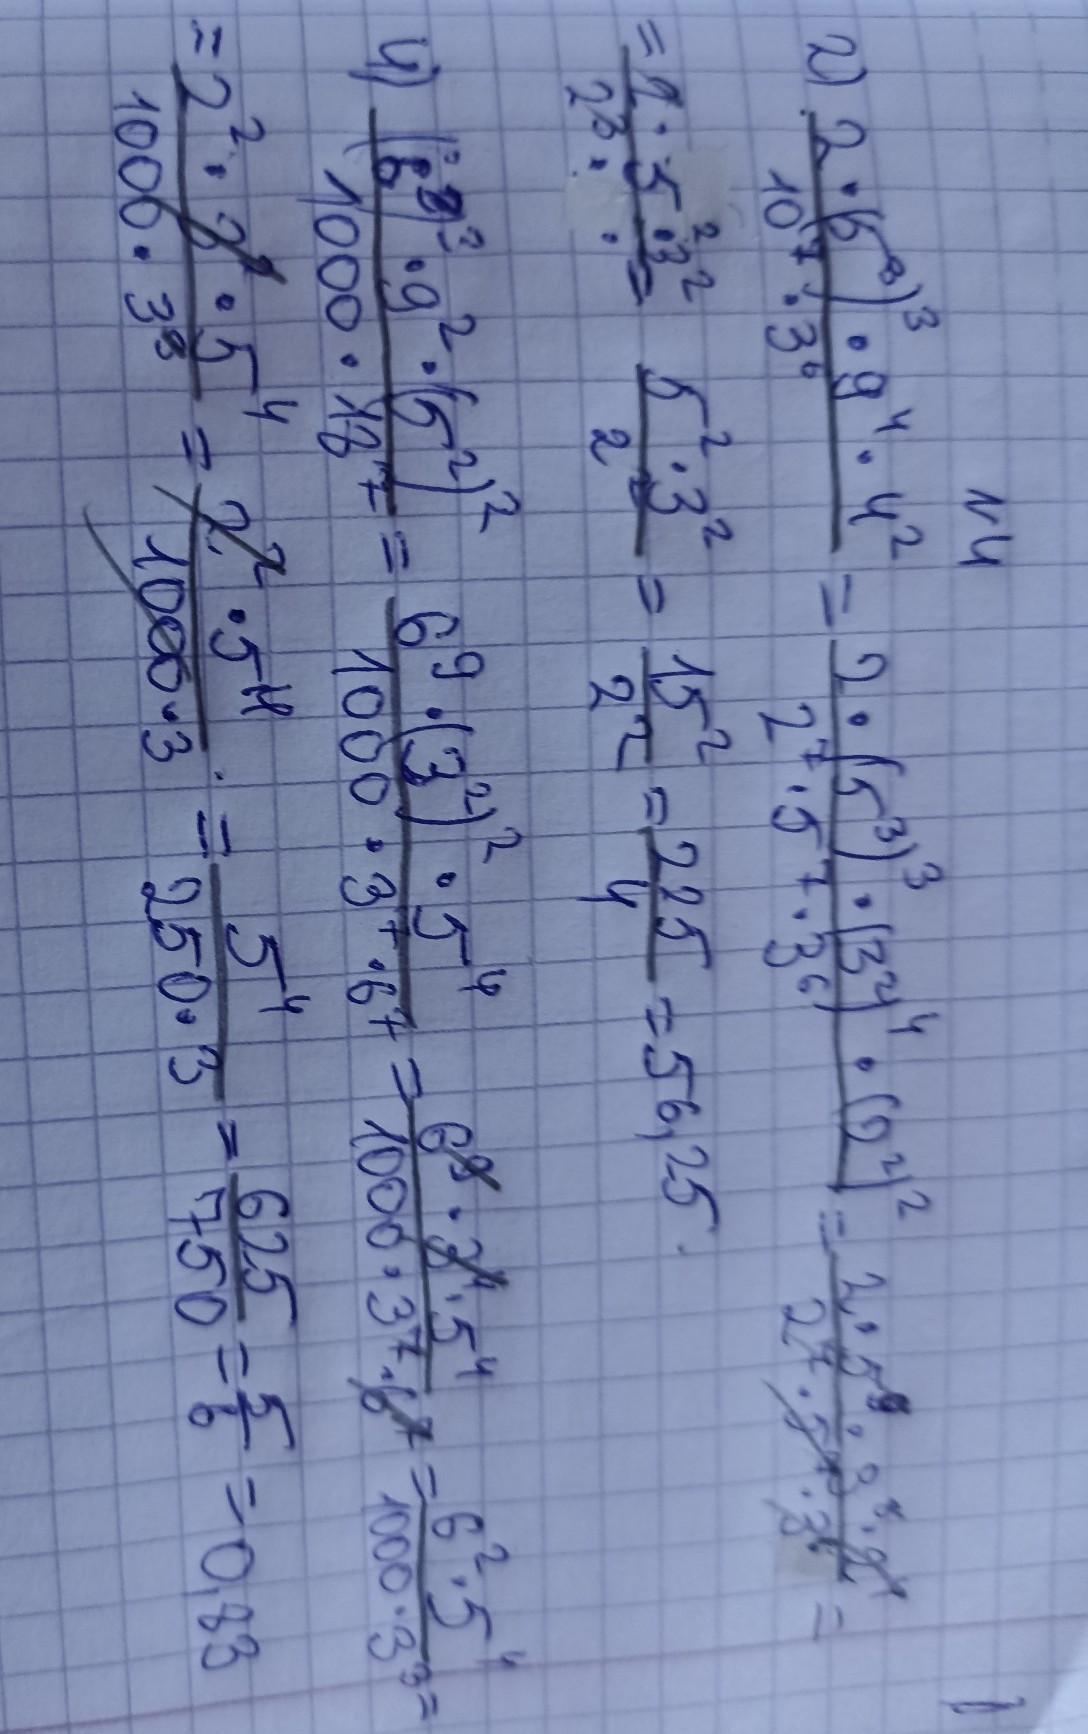 N4
2) (2·(5^3)^3·9^4·4^2)/(10^7·3^6) = (2·(5^3)^3·(3^2)^4·(2^2)^2)/(2^7·5^7·3^6) = (2·5^9·3^8·2^4)/(2^7·5^7·3^6) =
= (1·5^2·3^2)/2^2 = (5^2·3^2)/2^2 = 15^2/2^2 = 225/4 = 56,25.
4) ((6^3)^3·9^2·(5^2)^2)/(1000·18^7) = (6^9·(3^2)^2·5^4)/(1000·3^7·6^7) = (6^9·3^4·5^4)/(1000·3^7·6^7) = (6^2·5^4)/(1000·3^3) =
= (2^2·3^2·5^4)/(1000·3^3) = (2^2·5^4)/(1000·3) = 5^4/(250·3) = 625/750 = 5/6 = 0,83